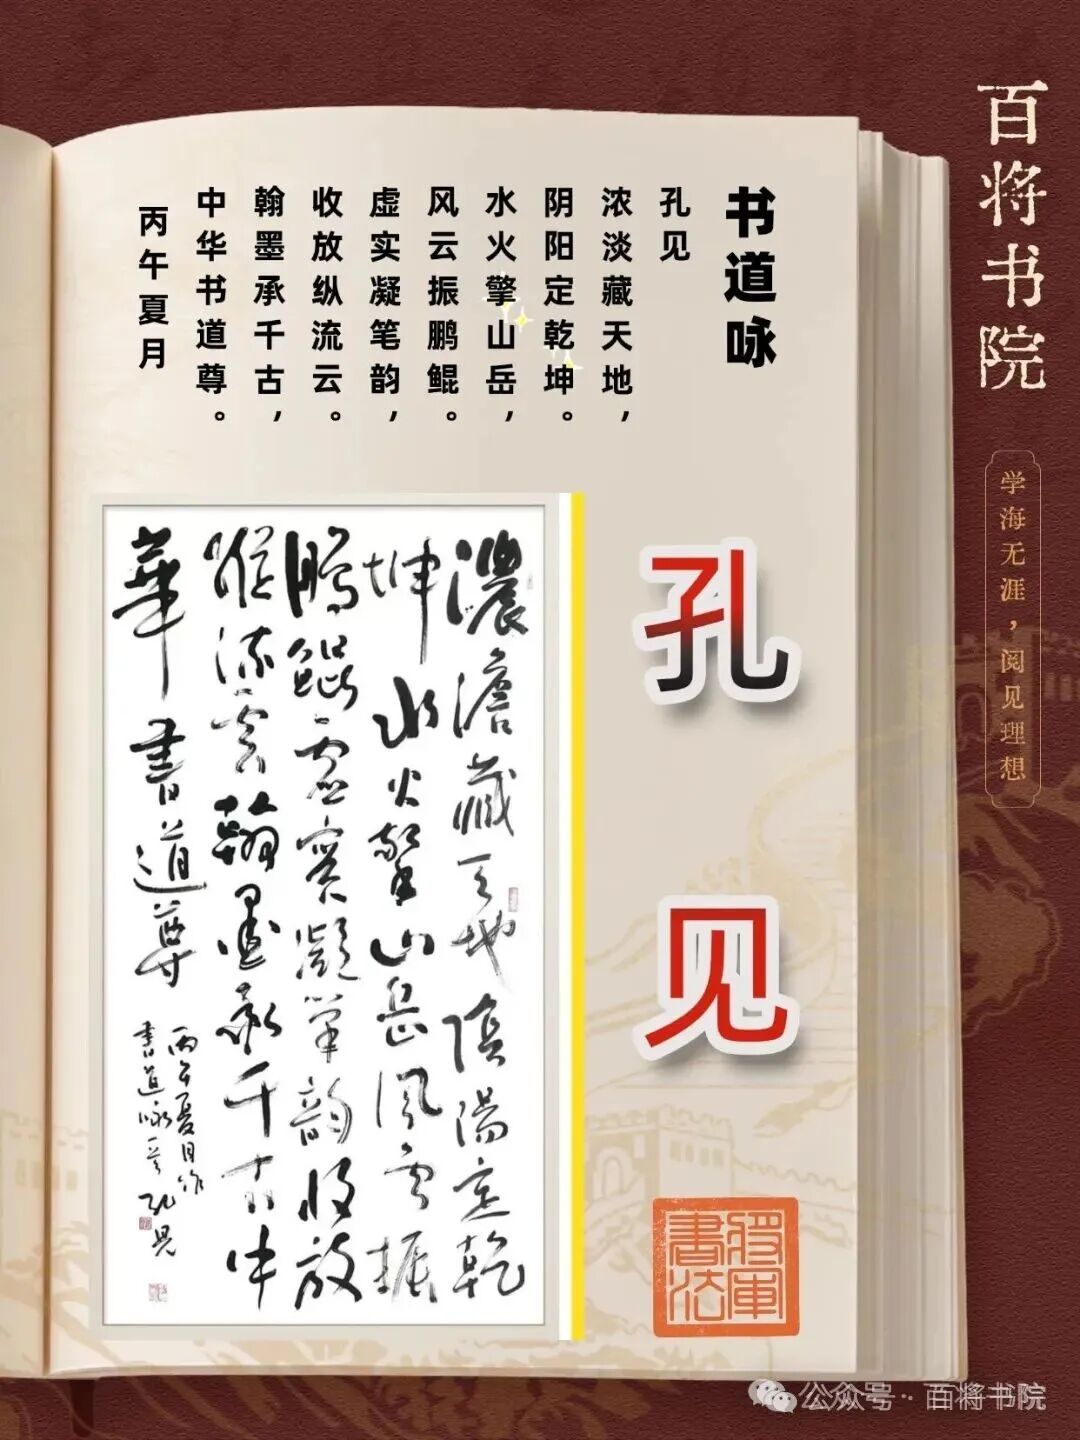 百将书院
学海无涯，阅见理想
书道咏
孔见
浓淡藏天地，
阴阳定乾坤。
水火擎山岳，
风云振鹏鲲。
虚实凝笔韵，
收放纵流云。
翰墨承千古，
中华书道尊。
丙午夏月
孔见
濃澹藏天地陰陽定乾
坤水火擎山岳風雲振
鵬鯤虛實凝筆韻收放
縱流雲翰墨承千古中
華書道尊
丙午夏月作
書道咏一首 孔見
將軍書法
公众号·百将书院